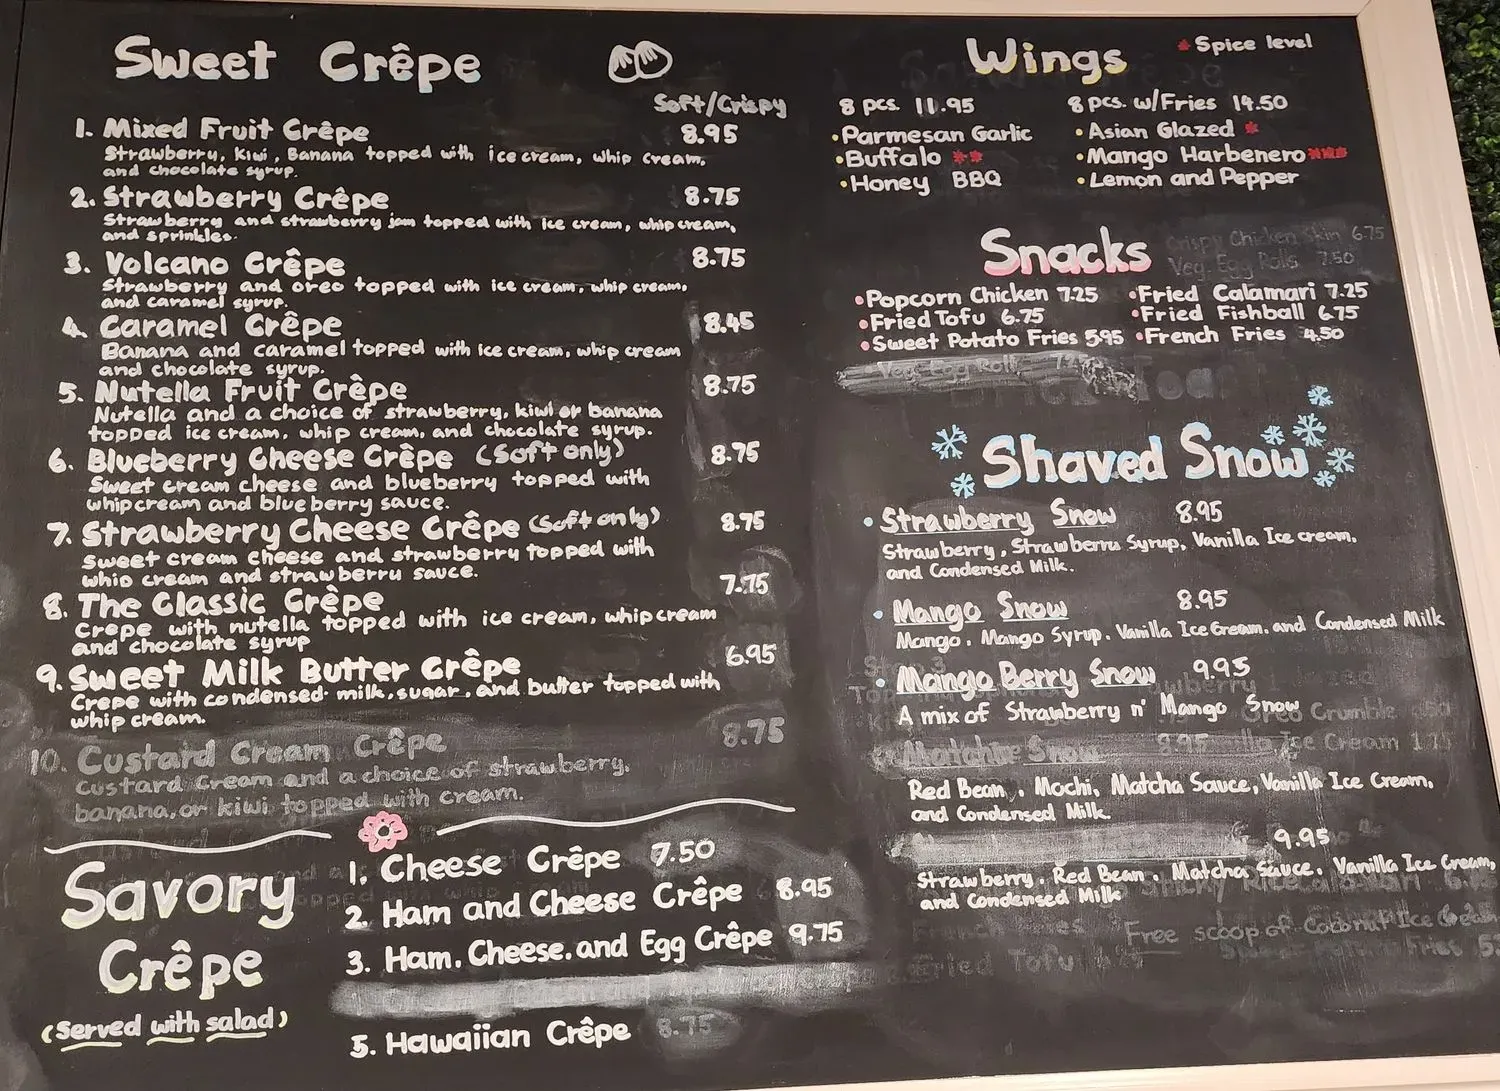 Sweet Crêpe
Soft/Crispy
1. Mixed Fruit Crêpe 8.95
Strawberry, Kiwi, Banana topped with ice cream, whip cream,
and chocolate syrup.
2. Strawberry Crêpe 8.75
Strawberry and strawberry jam topped with ice cream, whip cream,
and sprinkles.
3. Volcano Crêpe 8.75
Strawberry and oreo topped with ice cream, whip cream,
and caramel syrup.
4. Caramel Crêpe 8.45
Banana and caramel topped with ice cream, whip cream
and chocolate syrup.
5. Nutella Fruit Crêpe 8.75
Nutella and a choice of strawberry, kiwi or banana
topped ice cream, whip cream, and chocolate syrup.
6. Blueberry Cheese Crêpe (Soft only) 8.75
Sweet cream cheese and blueberry topped with
whipcream and blueberry sauce.
7. Strawberry Cheese Crêpe (Soft only) 8.75
Sweet cream cheese and strawberry topped with
whip cream and strawberry sauce.
8. The Classic Crêpe 7.75
Crepe with nutella topped with ice cream, whip cream
and chocolate syrup
9. Sweet Milk Butter Crêpe 6.95
Crepe with condensed milk, sugar, and butter topped with
whip cream.
10. Custard Cream Crêpe 8.75
Custard Cream and a choice of strawberry,
banana, or kiwi topped with cream.
Savory
Crêpe
(Served with salad)
1. Cheese Crêpe 7.50
2. Ham and Cheese Crêpe 8.95
3. Ham, Cheese, and Egg Crêpe 9.75
5. Hawaiian Crêpe 8.75
Wings
Spice level
8 pcs. 11.95
8 pcs. w/Fries 14.50
•Parmesan Garlic
•Asian Glazed
•Buffalo
•Mango Harbenero
•Honey BBQ
•Lemon and Pepper
Snacks
Crispy Chicken Skin 6.75
Veg. Egg Rolls 7.50
•Popcorn Chicken 7.25 •Fried Calamari 7.25
•Fried Tofu 6.75 •Fried Fishball 6.75
•Sweet Potato Fries 5.95 •French Fries 4.50
Veg. Egg Roll
Shaved Snow
• Strawberry Snow 8.95
Strawberry, Strawberry Syrup, Vanilla Ice cream,
and Condensed Milk.
• Mango Snow 8.95
Mango, Mango Syrup, Vanilla Ice Cream, and Condensed Milk
• Mango Berry Snow 9.95
A mix of Strawberry n' Mango Snow
Snow 8.95
Red Bean, Mochi, Matcha Sauce, Vanilla Ice Cream,
and Condensed Milk
9.95
Strawberry, Red Bean, Matcha Sauce, Vanilla Ice Cream,
and Condensed Milk
Free scoop of Coconut Ice Cream